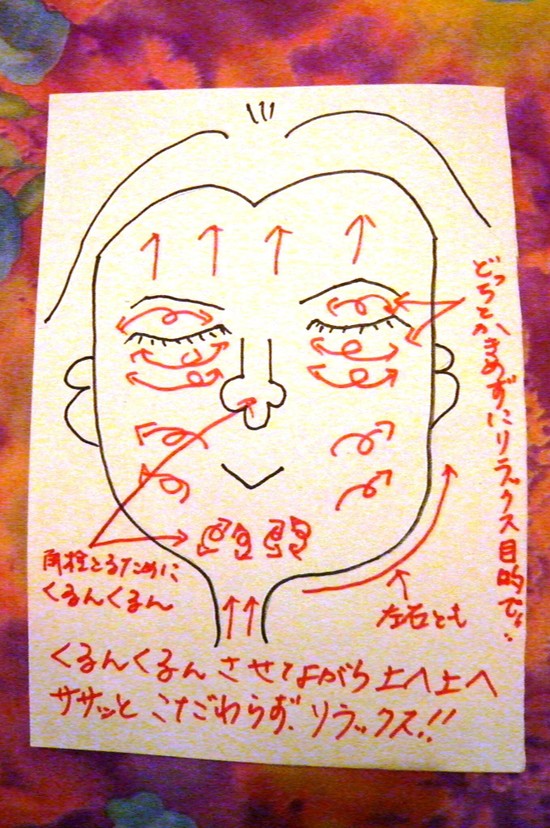 どっちとかきめずにリラックス目的で。
角栓とるために
くるんくるん
左右とも
くるんくるんさせてながら上へ上へ
ササッと こだわらず、リラックス!!